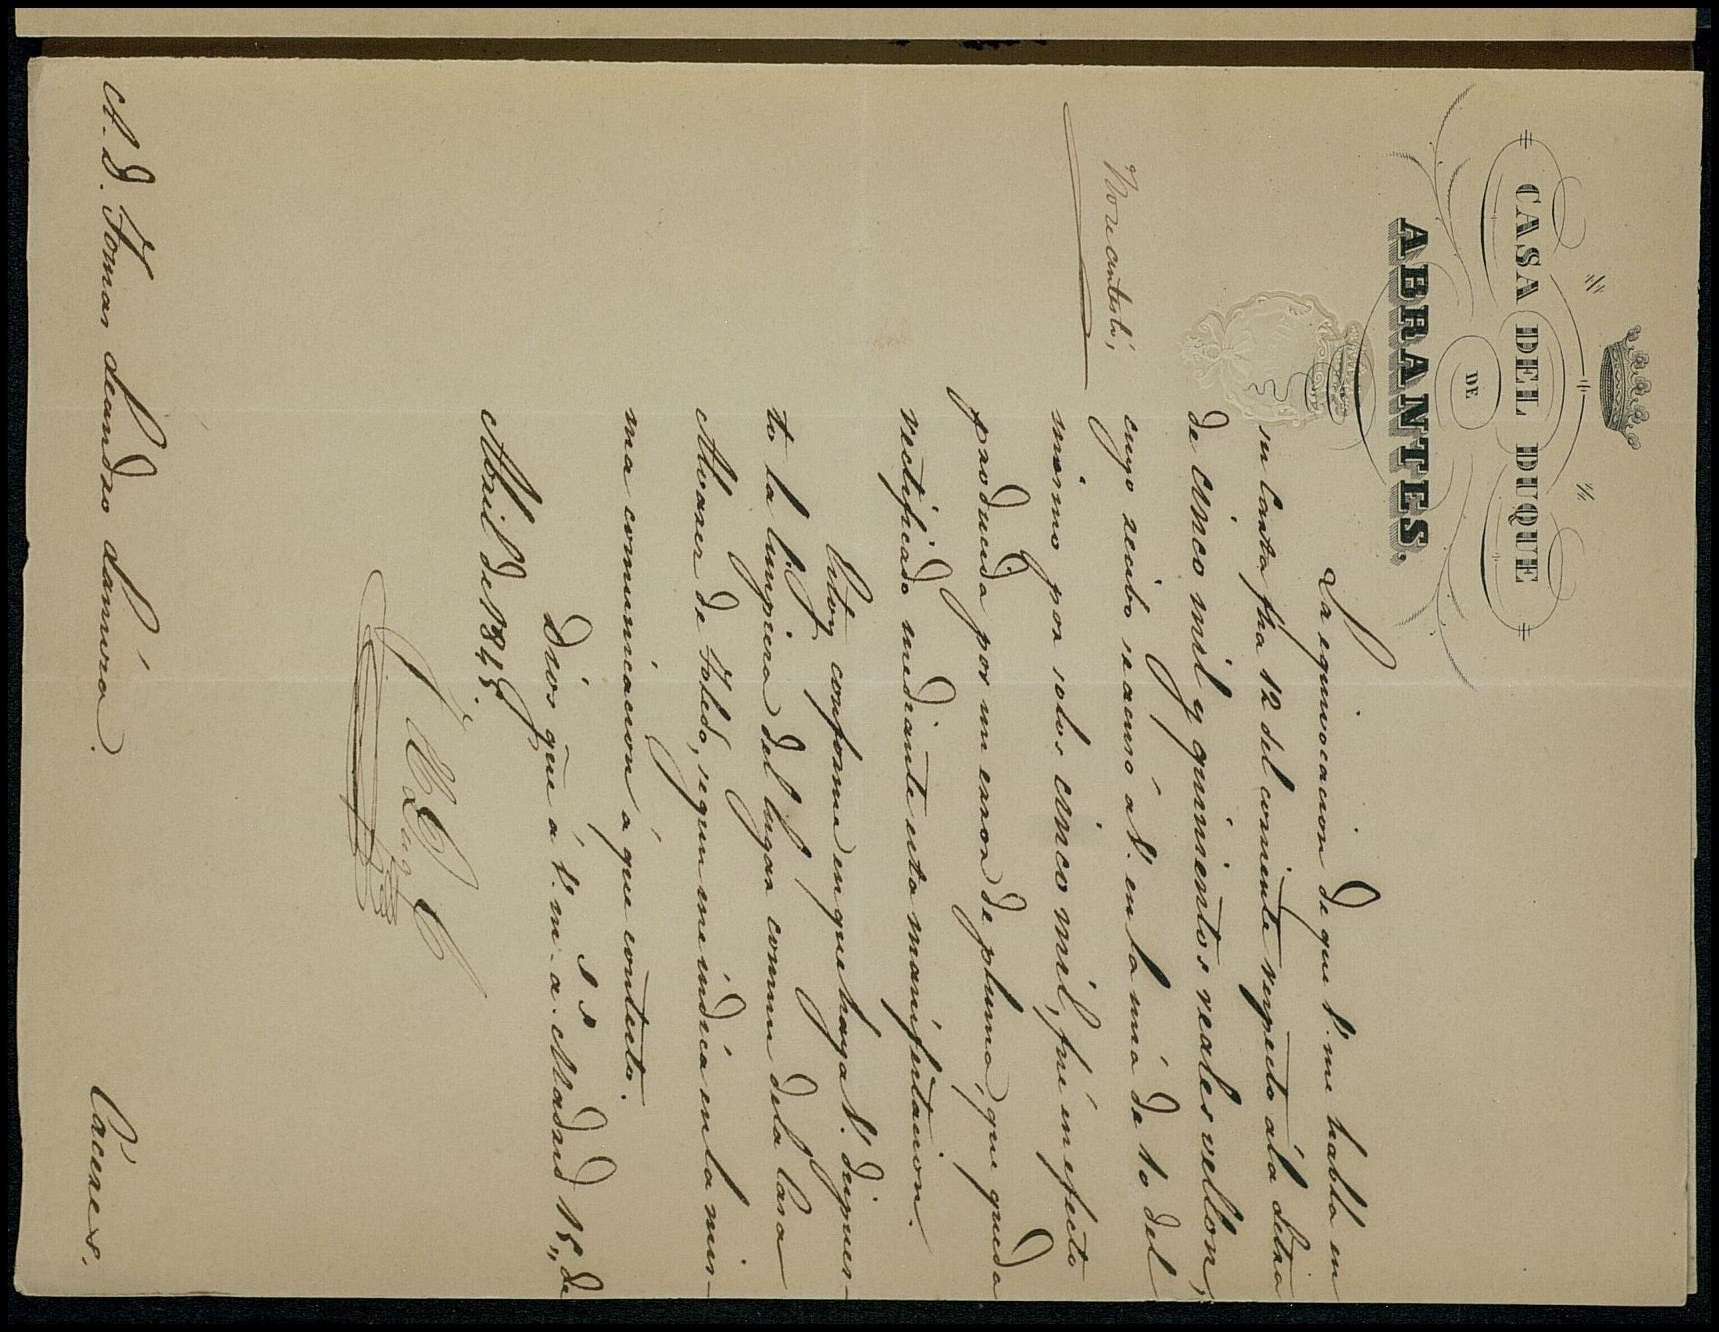 CASA DEL DUQUE
DE
ABRANTES.
La equivocacion de que V. me habla en
su Carta fha 12 del corriente respecto á la Letra
de cinco mil y quinientos reales vellon,
cuyo recibo se acusó á V. en la mia de 10 del
mismo por solos cinco mil, fué en efecto
producida por un error de pluma, que queda
rectificado mediante esta manifestacion.
Estoy conforme en que haya V. dispues-
to la limpieza del lugar comun de la Casa
Alvarez de Toledo, segun me indica en la mis-
ma comunicacion á que contesto.
Dios gue á V. m. a. Madrid 15,, de
Abril de 1845.
El Duq
A. D. Tomas Leandro Lamura.
Cáceres.